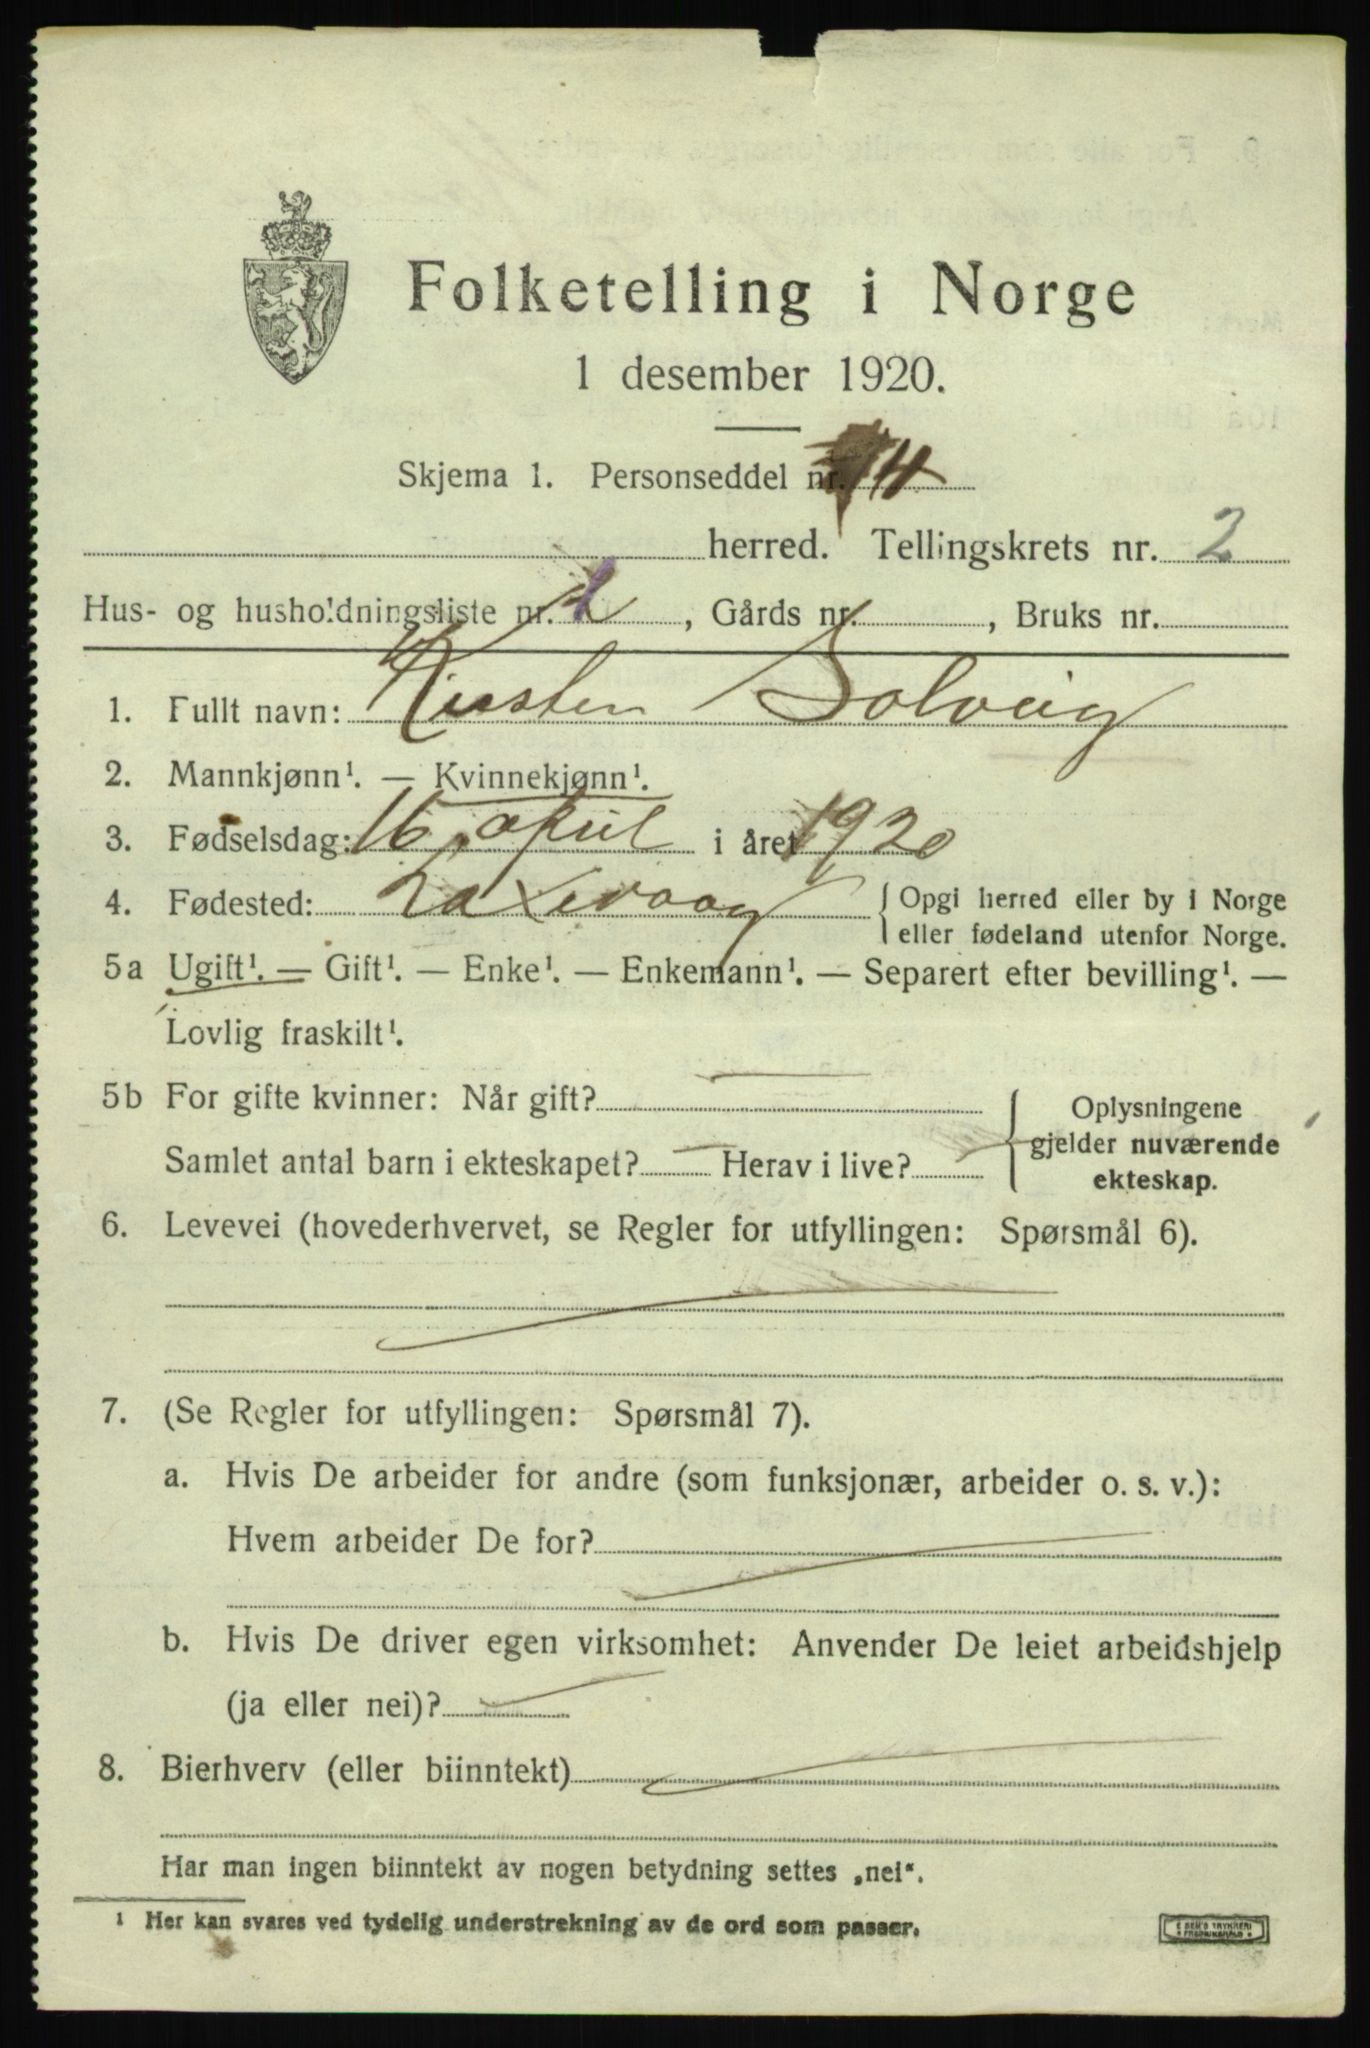 Folketelling i Norge
1 desember 1920.
Skjema 1. Personseddel nr. 14
herred. Tellingskrets nr. 2
Hus- og husholdningsliste nr. 1, Gårds nr. , Bruks nr.
1. Fullt navn: Kirsten Solveig
2. Mannkjønn¹. — Kvinnekjønn¹.
3. Fødselsdag: 16 april i året 1920
4. Fødested: Laxevaag { Opgi herred eller by i Norge
eller fødeland utenfor Norge.
5a Ugift¹. — Gift¹. — Enke¹. — Enkemann¹. — Separert efter bevilling¹. —
Lovlig fraskilt¹.
5b For gifte kvinner: Når gift? — { Oplysningene
Samlet antal barn i ekteskapet? — Herav i live? — gjelder nuværende
ekteskap.
6. Levevei (hovederhvervet, se Regler for utfyllingen: Spørsmål 6).
7. (Se Regler for utfyllingen: Spørsmål 7).
a. Hvis De arbeider for andre (som funksjonær, arbeider o. s. v.):
Hvem arbeider De for?
b. Hvis De driver egen virksomhet: Anvender De leiet arbeidshjelp
(ja eller nei)?
8. Bierhverv (eller biinntekt)
Har man ingen biinntekt av nogen betydning settes „nei“.
¹ Her kan svares ved tydelig understrekning av de ord som passer.